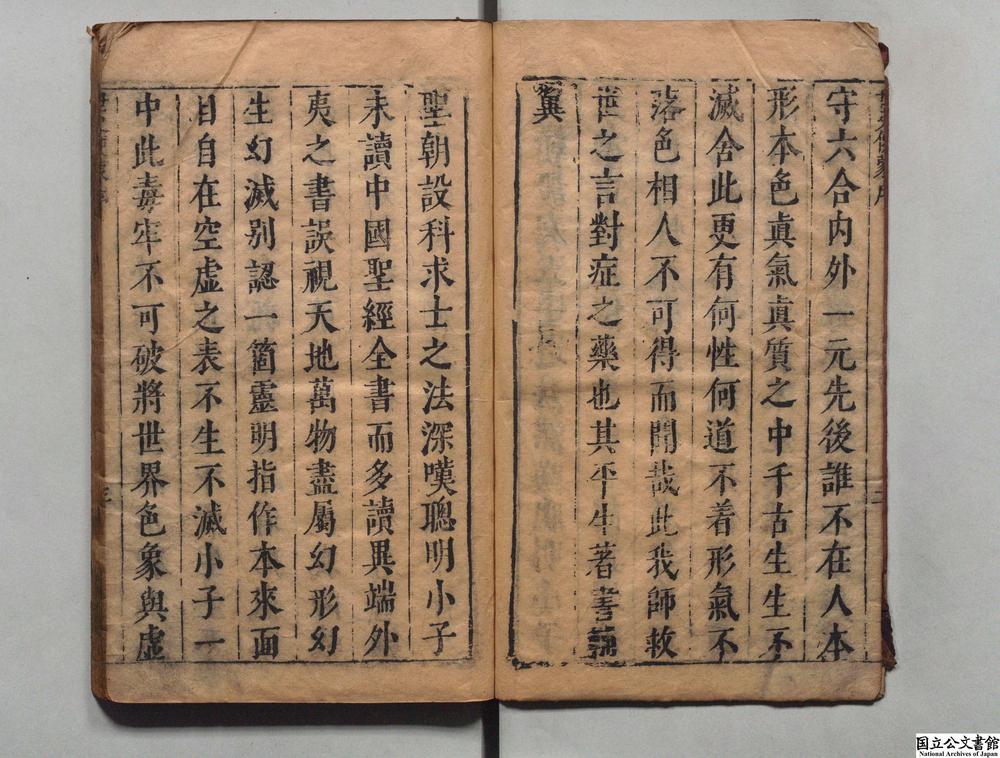 守六合内外一元先後誰不在人本
形本色眞氣眞質之中千古生生不
滅舍此更有何性何道不着形氣不
落色相人不可得而聞哉此我師救
世之言對症之藥也其平生著書
冀
聖朝設科求士之法深嘆聰明小子
未讀中國聖經全書而多讀異端外
夷之書誤視天地萬物盡屬幻形幻
生幻滅别認一箇靈明指作本來面
目自在空虚之表不生不滅小子一
中此毒牢不可破將世界色象與虚
国立公文書館
National Archives of Japan